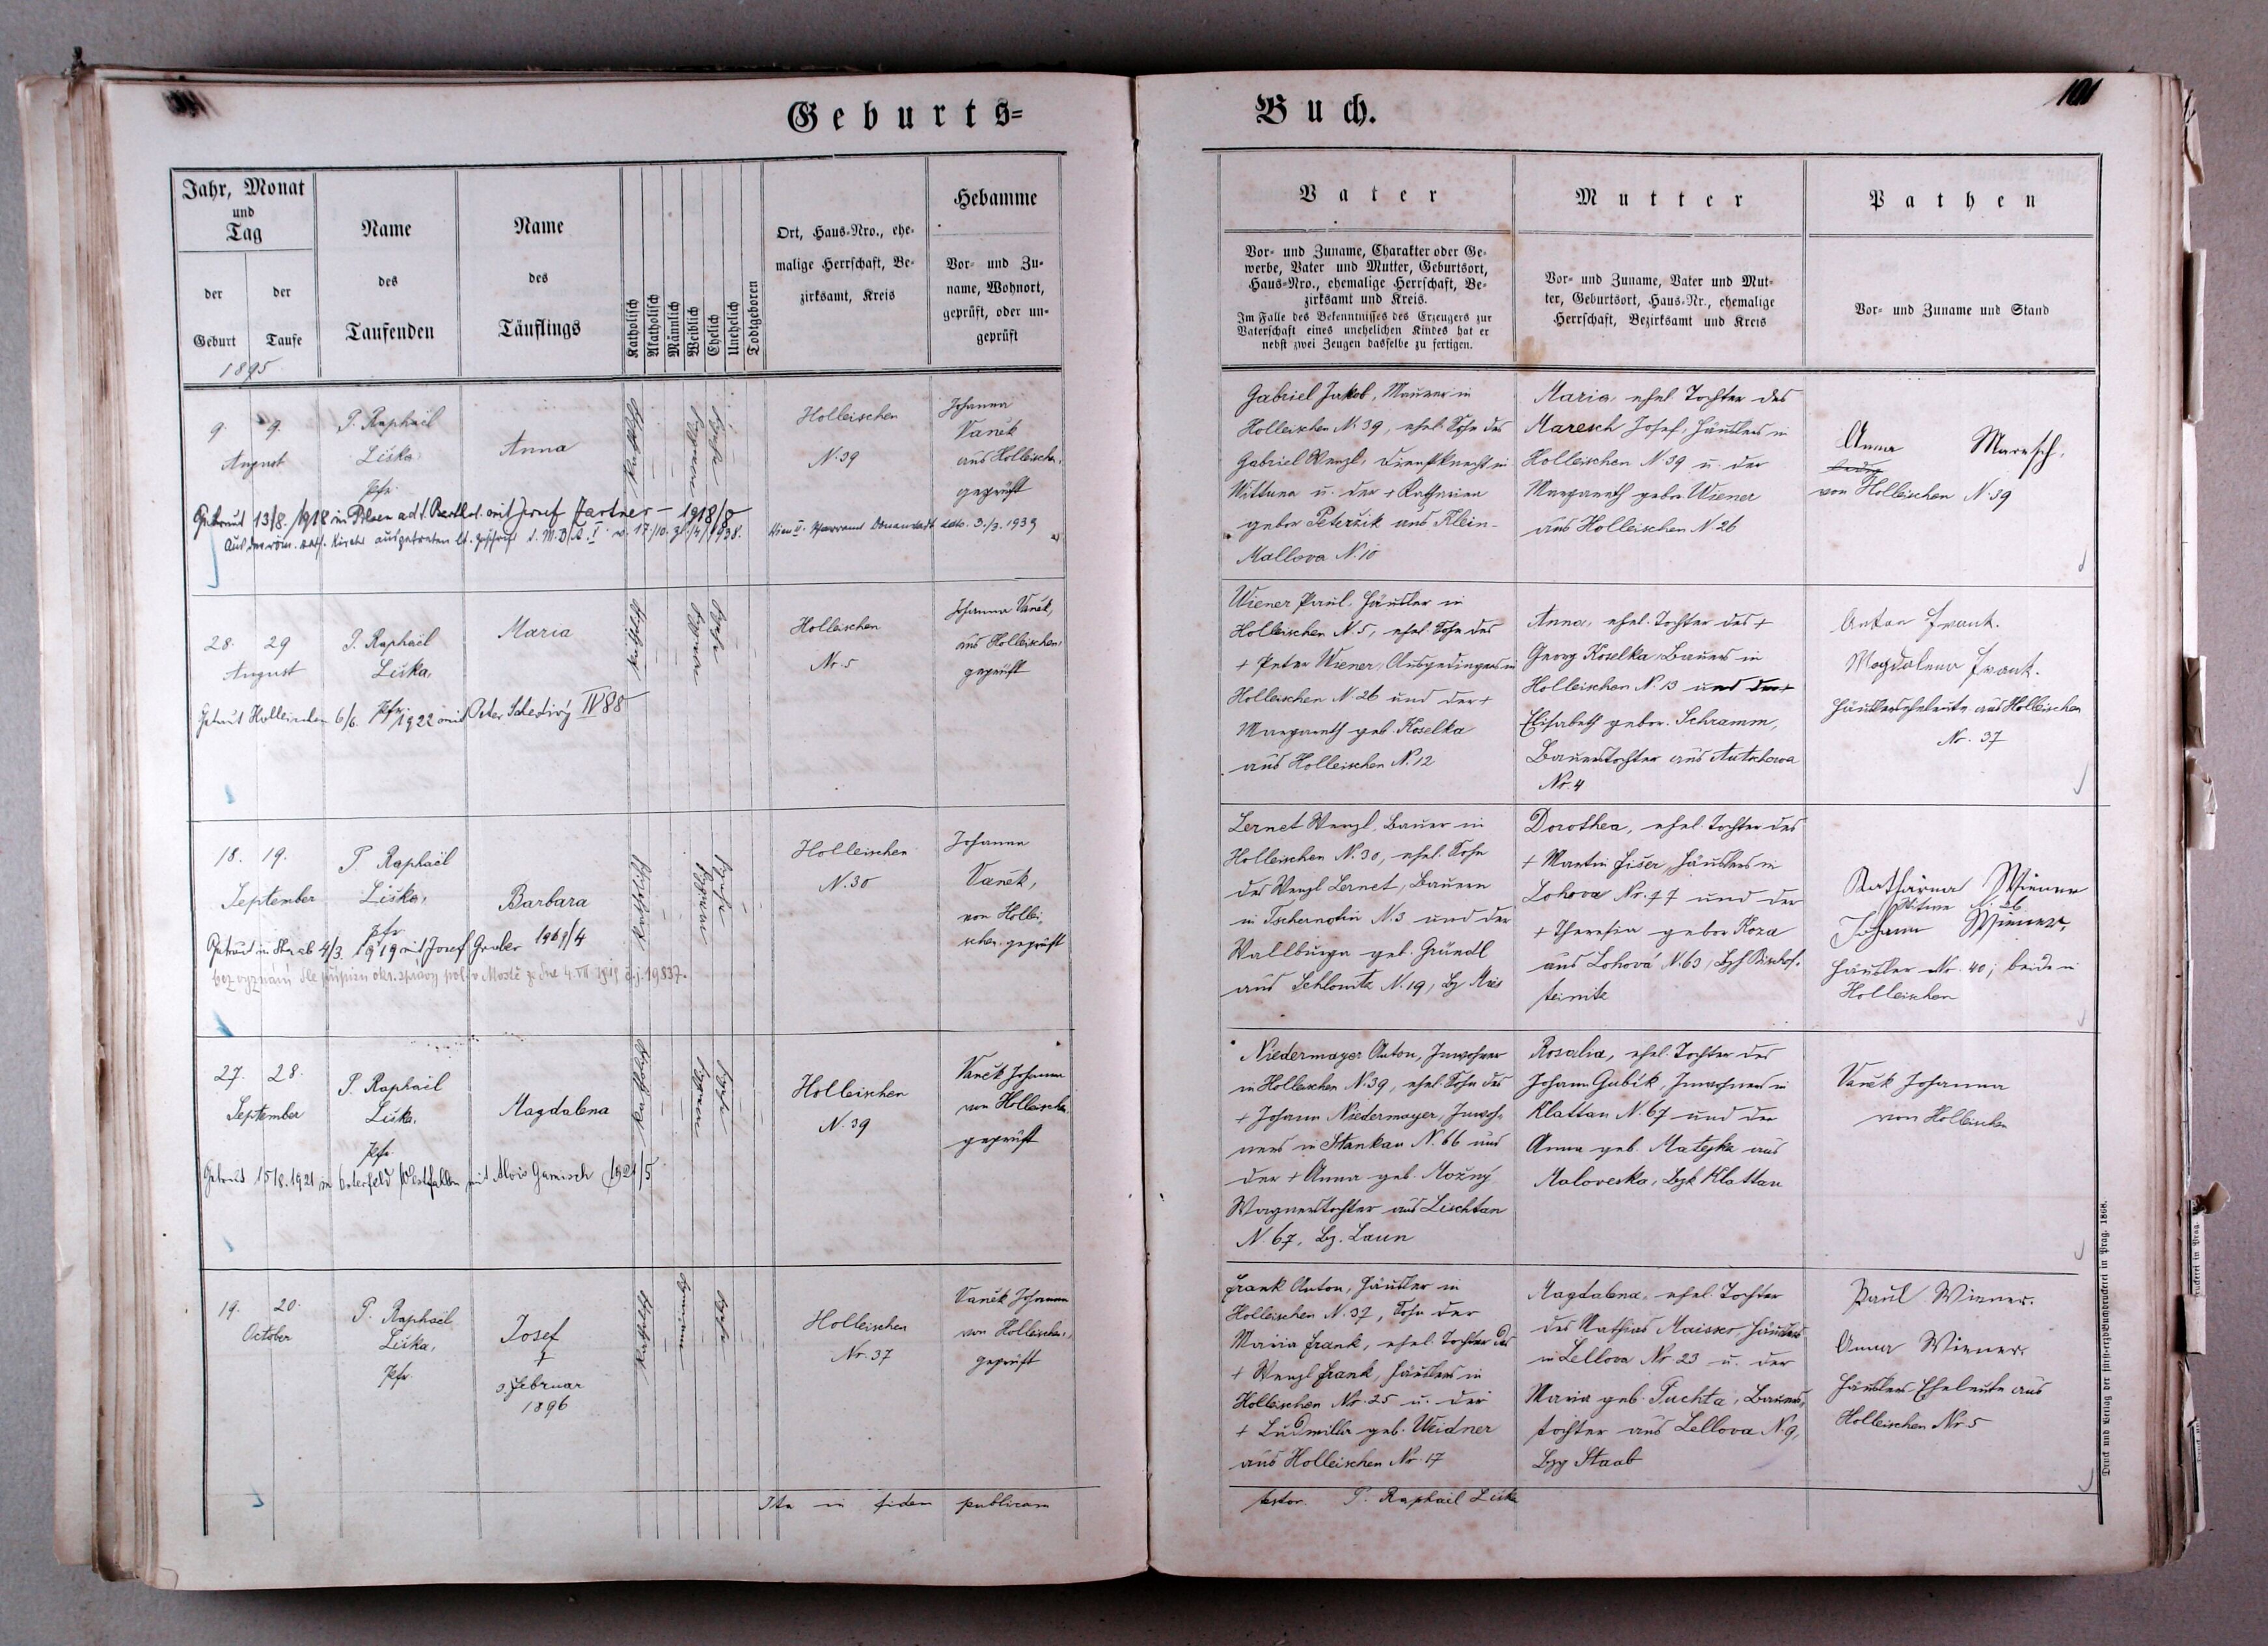 Geburts=
Jahr, Monat
und
Tag
der
Geburt
der
Taufe
Name
des
Taufenden
Name
des
Täuflings
Katholisch
Akatholisch
Männlich
Weiblich
Ehelich
Unehelich
Todtgeboren
Ort, Haus-Nro., ehe-
malige Herrschaft, Be-
zirksamt, Kreis
Hebamme
Vor- und Zu-
name, Wohnort,
geprüft, oder un-
geprüft
1895
9. 9.
August
P. Raphael
Liška
Pfr.
Anna
Holleischen
N. 39
Johanna
Vaněk
aus Holleischen,
geprüft
Getraut 13/8. 1918 in Pilsen ad S. Barthol. mit Josef Fartner — 1918/8
Aus der röm. kath. Kirche ausgetreten
28. 29
August
P. Raphael
Liška,
Pfr.
Maria
Holleischen
Nr. 5
Johanna Vaněk,
aus Holleischen,
geprüft
Getraut Holleischen 6/6. 1922 mit Peter Schediwý IV 88
18. 19.
September
P. Raphaël
Liška,
Pfr.
Barbara
Katholisch
Holleischen
N. 30
Johanna
Vaněk,
von Hollei-
schen. geprüft
Getraut in Staab 4/3. 1919 mit Josef Gruber
bez vyznání dle přípisu okr. správy pol. v Mostě ze dne 4. VII 1919 č.j. 19837.
27. 28.
September
P. Raphael
Liška.
Pfr.
Magdalena
Katholisch
Holleischen
N. 39
Vaněk Johanna
von Holleischen
geprüft
Getraut 15/8. 1921 in Osterfeld Westfallen mit Alois Gamisch 1921/5
19. 20.
October
P. Raphael
Liška,
Pfr.
Josef
†
3. Februar
1896
Katholisch
Holleischen
Nr. 37
Vaněk Johanna
von Holleischen,
geprüft
Ita in fidem publicam
Buch.
101
Vater
Vor- und Zuname, Charakter oder Ge-
werbe, Vater und Mutter, Geburtsort,
Haus-Nro., ehemalige Herrschaft, Be-
zirksamt und Kreis.
Im Falle des Bekenntnisses des Erzeugers zur
Vaterschaft eines unehelichen Kindes hat er
nebst zwei Zeugen dasselbe zu fertigen.
Mutter
Vor- und Zuname, Vater und Mut-
ter, Geburtsort, Haus-Nr., ehemalige
Herrschaft, Bezirksamt und Kreis
Pathen
Vor- und Zuname und Stand
Gabriel Jakob, Maurer in
Holleischen N. 39, ehel. Sohn des
Gabriel Wenzl, Dienstknecht in
Wittuna u. der + Katharina
gebor Peteržik aus Klein-
Mallova N. 10
Maria, ehel. Tochter des
Maresch Josef, Häuslers in
Holleischen N. 39 u. der
Margareth gebor. Wiener
aus Holleischen N. 26
Anna Maresch,
von Holleischen N. 39
Wiener Paul, Häusler in
Holleischen N. 5, ehel. Sohn des
+ Peter Wiener, Ausgedingers in
Holleischen N. 26 und der +
Margareth geb. Koselka
aus Holleischen N. 12
Anna, ehel. Tochter des +
Georg Koselka, Bauers in
Holleischen N. 13 und der +
Elisabeth gebor. Schramm,
Bauerstochter aus Autschowa
Nr. 4
Anton Frank.
Magdalena Frank.
Häuslerseheleute aus Holleischen
Nr. 37
Lernet Wenzl, Bauer in
Holleischen N. 30, ehel. Sohn
des Wenzl Lernet, Bauern
in Tschernotin N. 3 und der
Wallburga geb. Gründl
aus Schlowitz N. 19, Bz Mies
Dorothea, ehel. Tochter des
+ Martin Fišer, Häuslers in
Lohova Nr. 77 und der
+ Theresia gebor Koza
aus Lohová N. 63, Bischof-
teinitz
Katharina Wiener
Witwe N. 26
Johann Wiener,
Häusler Nr. 40; beide in
Holleischen
Niedermayer Anton, Inwohner
in Holleischen N. 39, ehel. Sohn des
+ Johann Niedermayer, Inwoh-
ners in Stankau N. 66 und
der + Anna geb. Možný
Wagnerstochter aus Lischtan
N. 67, Bz. Laun
Rosalia, ehel. Tochter des
Johann Gubík, Inwohners in
Klattau N. 67 und der
Anna geb. Matejka aus
Maloveska, Bzk Klattau
Vaněk Johanna
von Holleischen
Frank Anton, Häusler in
Holleischen N. 37, Sohn der
Maria Frank, ehel. Tochter des
+ Wenzl Frank, Häuslers in
Holleischen Nr. 25 u. der
+ Ludmilla geb. Weidner
aus Holleischen Nr. 17
Magdalena, ehel. Tochter
des Mathias Maisser, Häuslers
in Lellova Nr. 23 u. der
Maria geb. Tuchta, Bauers-
tochter aus Lellova N. 9,
Bzg Staab
Paul Wiener.
Anna Wiener,
Häuslers-Eheleute aus
Holleischen Nr 5
testor. P. Raphael Liška
Druck und Verlag der fürsterzb. Buchdruckerei in Prag. 1868.